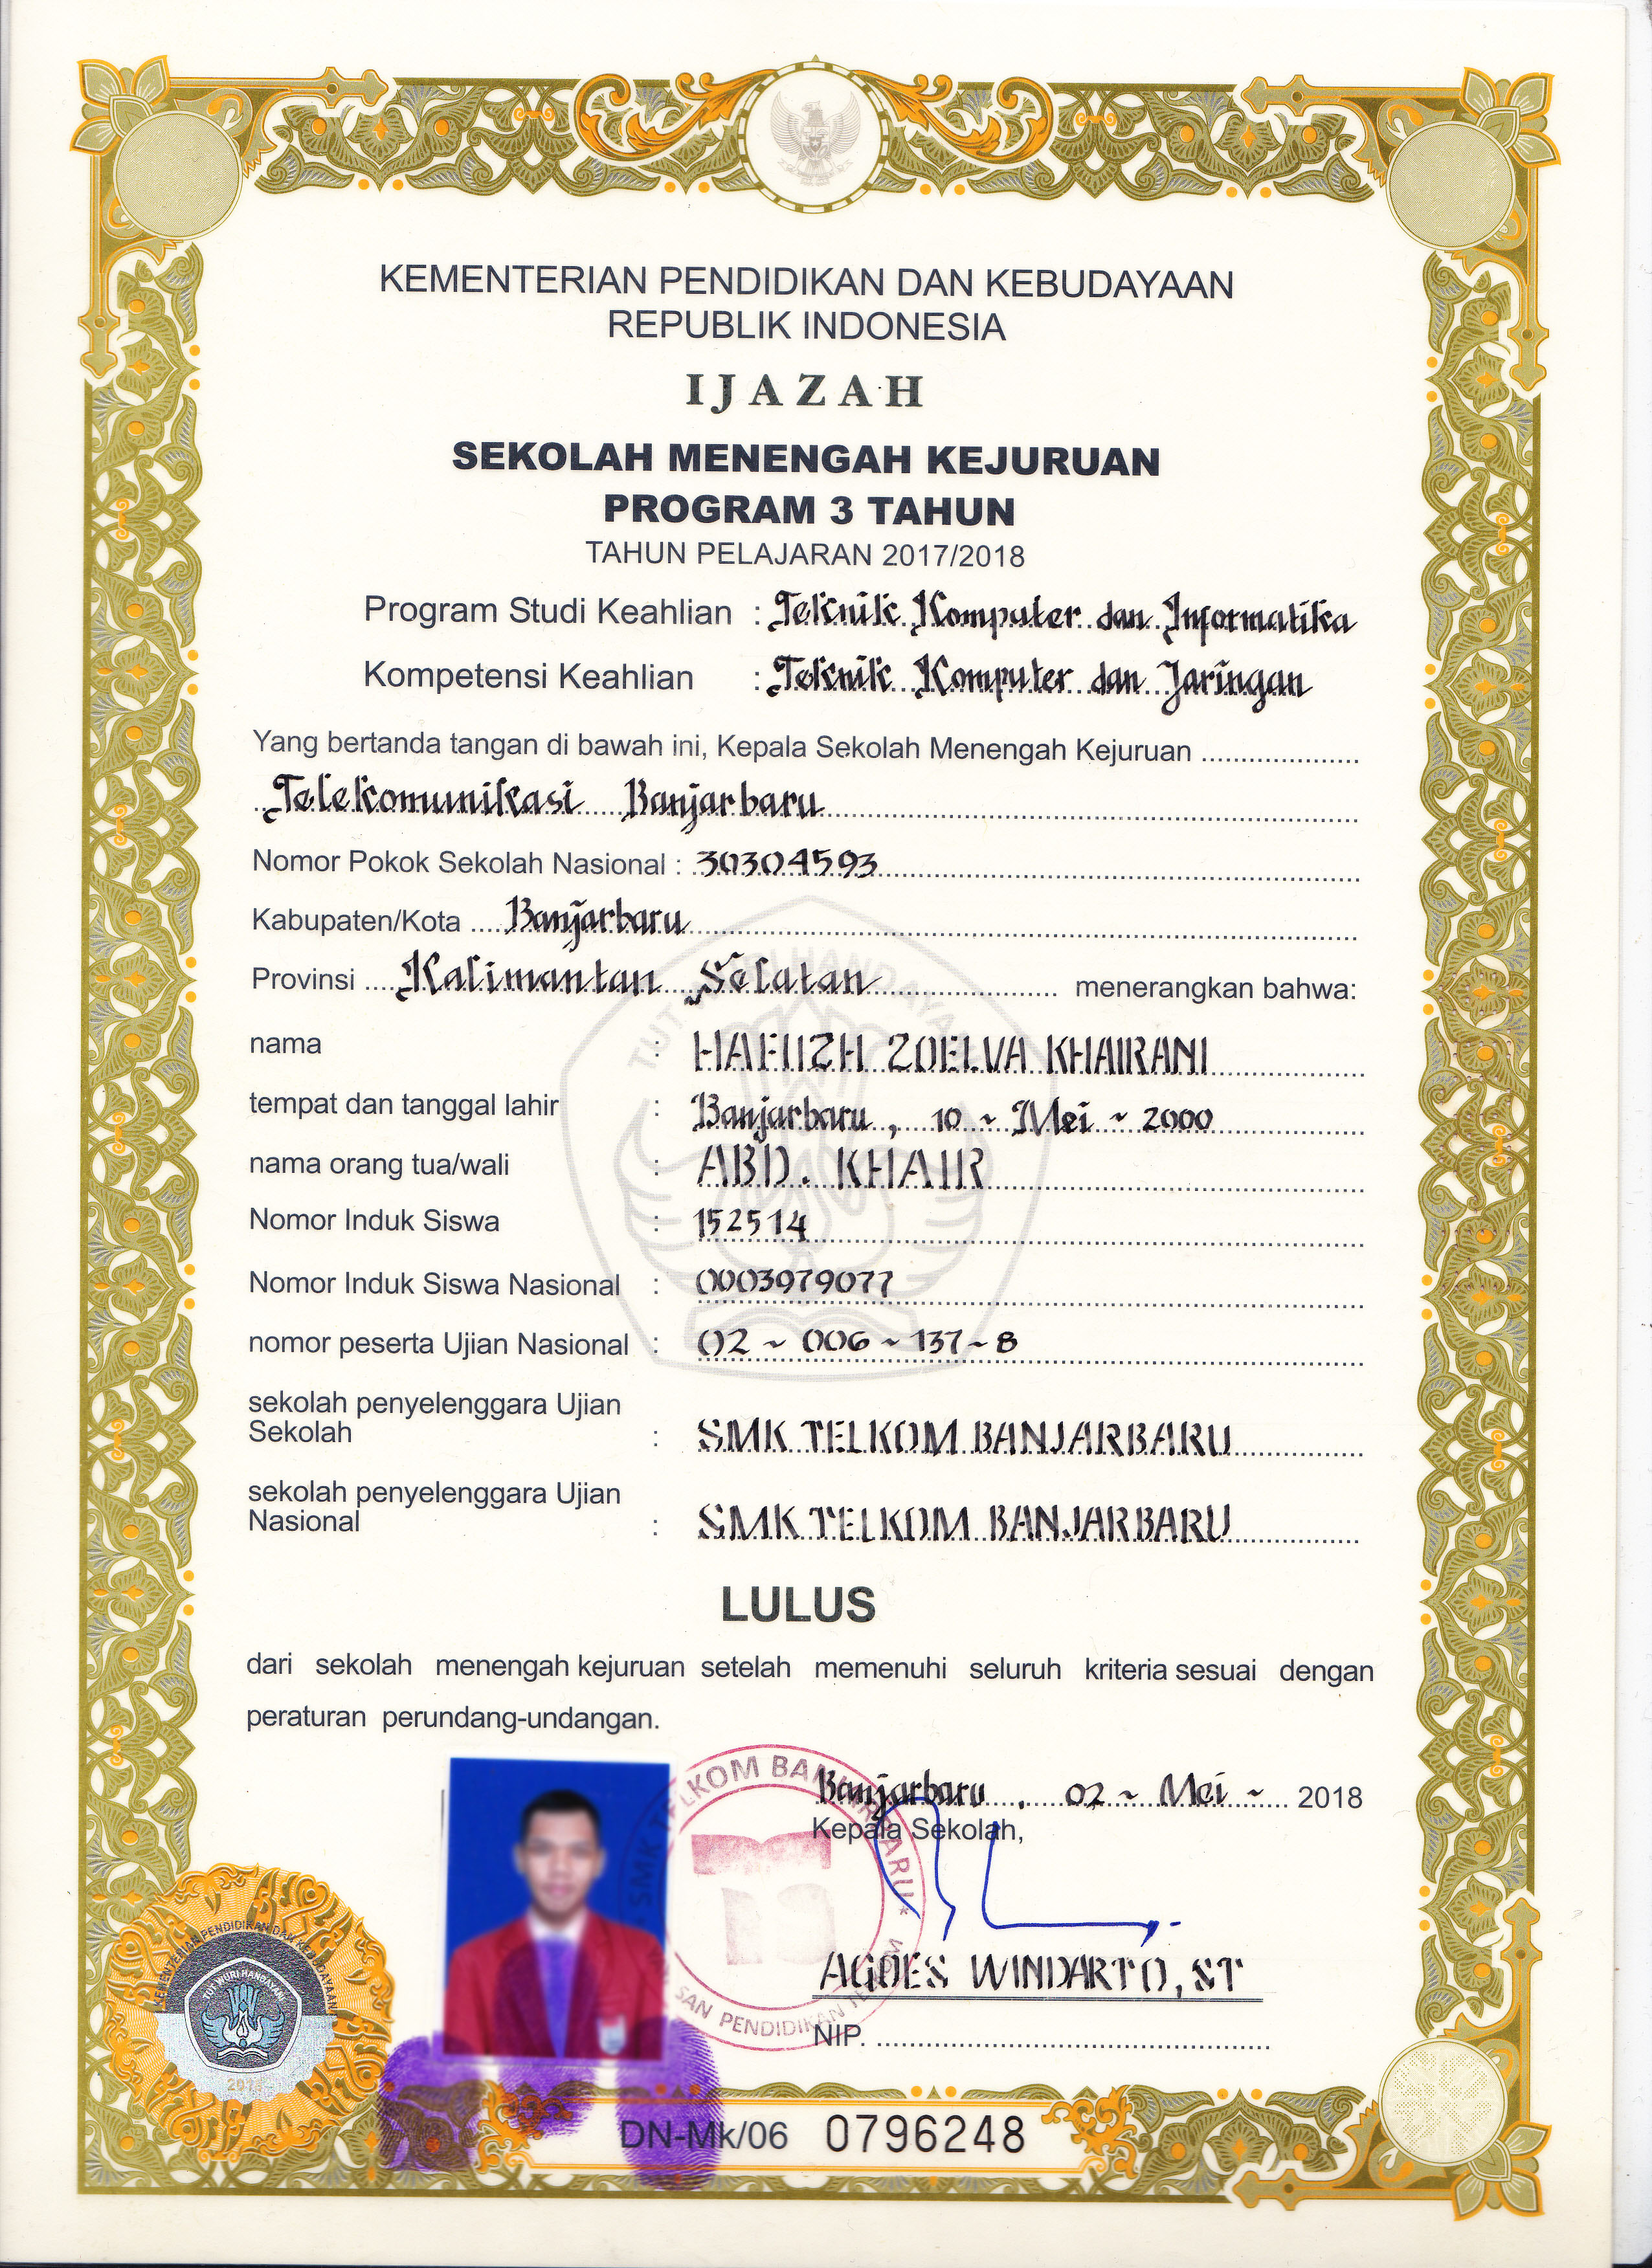 KEMENTERIAN PENDIDIKAN DAN KEBUDAYAAN
REPUBLIK INDONESIA
IJAZAH
SEKOLAH MENENGAH KEJURUAN
PROGRAM 3 TAHUN
TAHUN PELAJARAN 2017/2018
Program Studi Keahlian : Teknik Komputer dan Informatika
Kompetensi Keahlian : Teknik Komputer dan Jaringan
Yang bertanda tangan di bawah ini, Kepala Sekolah Menengah Kejuruan ....................
Telekomunikasi Banjarbaru
Nomor Pokok Sekolah Nasional : 30304593
Kabupaten/Kota .... Banjarbaru
Provinsi .... Kalimantan Selatan menerangkan bahwa:
TUT WURI HANDAYANI
nama : HAFIIZH ZOELVA KHAIRANI
tempat dan tanggal lahir : Banjarbaru, 10 ~ Mei ~ 2000
nama orang tua/wali : ABD. KHAIR
Nomor Induk Siswa : 152514
Nomor Induk Siswa Nasional : 0003979077
nomor peserta Ujian Nasional : 02 ~ 006 ~ 137 ~ 8
sekolah penyelenggara Ujian
Sekolah : SMK TELKOM BANJARBARU
sekolah penyelenggara Ujian
Nasional : SMK TELKOM BANJARBARU
LULUS
dari sekolah menengah kejuruan setelah memenuhi seluruh kriteria sesuai dengan
peraturan perundang-undangan.
SMK TELKOM BANJARBARU *
Banjarbaru, 02 ~ Mei ~ 2018
Kepala Sekolah,
AGOES WINDARTO, ST
SAN PENDIDIKAN TELKOM
NIP. ....................
KEMENTERIAN PENDIDIKAN DAN KEBUDAYAAN
TUT WURI HANDAYANI
DN-Mk/06 0796248